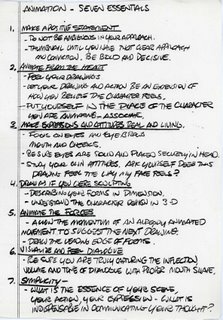 ANIMATION - SEVEN ESSENTIALS
1. MAKE A POSITIVE STATEMENT
- TO NOT BE AMBIGUOUS IN YOUR APPROACH.
- THUMBNAIL UNTIL YOU HAVE MOST CLEAR APPROACH
AND CONVICTION. BE BOLD AND DECISIVE.
2. ANIMATE FROM THE HEART
- FEEL YOUR DRAWINGS
- LET YOUR DRAWINGS AND ACTION BE AN EXTENSION OF
HOW YOU REALIZE THE CHARACTER FEELS.
- PUT YOURSELF IN THE PLACE OF THE CHARACTER
YOU ARE ANIMATING - ASSOCIATE.
3. MAKE EXPRESSIONS AND ATTITUDES REAL AND LIVING.
- FOCUS ON EYES AND EYEBROWS
MOUTH AND CHEEKS.
- BE SURE EYES ARE SOLID AND PLACED SECURELY IN HEAD.
- STUDY YOUR OWN ATTITUDES. ASK YOURSELF DOES THIS
DRAWING FEEL THE WAY MY FACE FEELS?
4. DRAW AS IF YOU WERE SCULPTING
- DESCRIBING YOUR FORMS IN DIMENSION.
- UNDERSTAND THE CHARACTER DESIGN IN 3-D
5. ANIMATE THE FORCES
- ALLOW THE MOMENTUM OF AN ALREADY ANIMATED
MOVEMENT TO SUGGEST THE NEXT DRAWING.
- DRAW THE LEADING EDGE OF FORMS.
6. VISUALIZE AND FEEL DIALOGUE
- BE SURE YOU ARE TRULY CAPTURING THE INFLECTION,
VOLUME AND TONE OF DIALOGUE WITH PROPER MOUTH SHAPE.
7. SIMPLICITY -
- WHAT IS THE ESSENCE OF YOUR SCENE,
YOUR ACTION, YOUR EXPRESSION - WHAT IS
INDISPENSABLE IN COMMUNICATING YOUR THOUGHT?